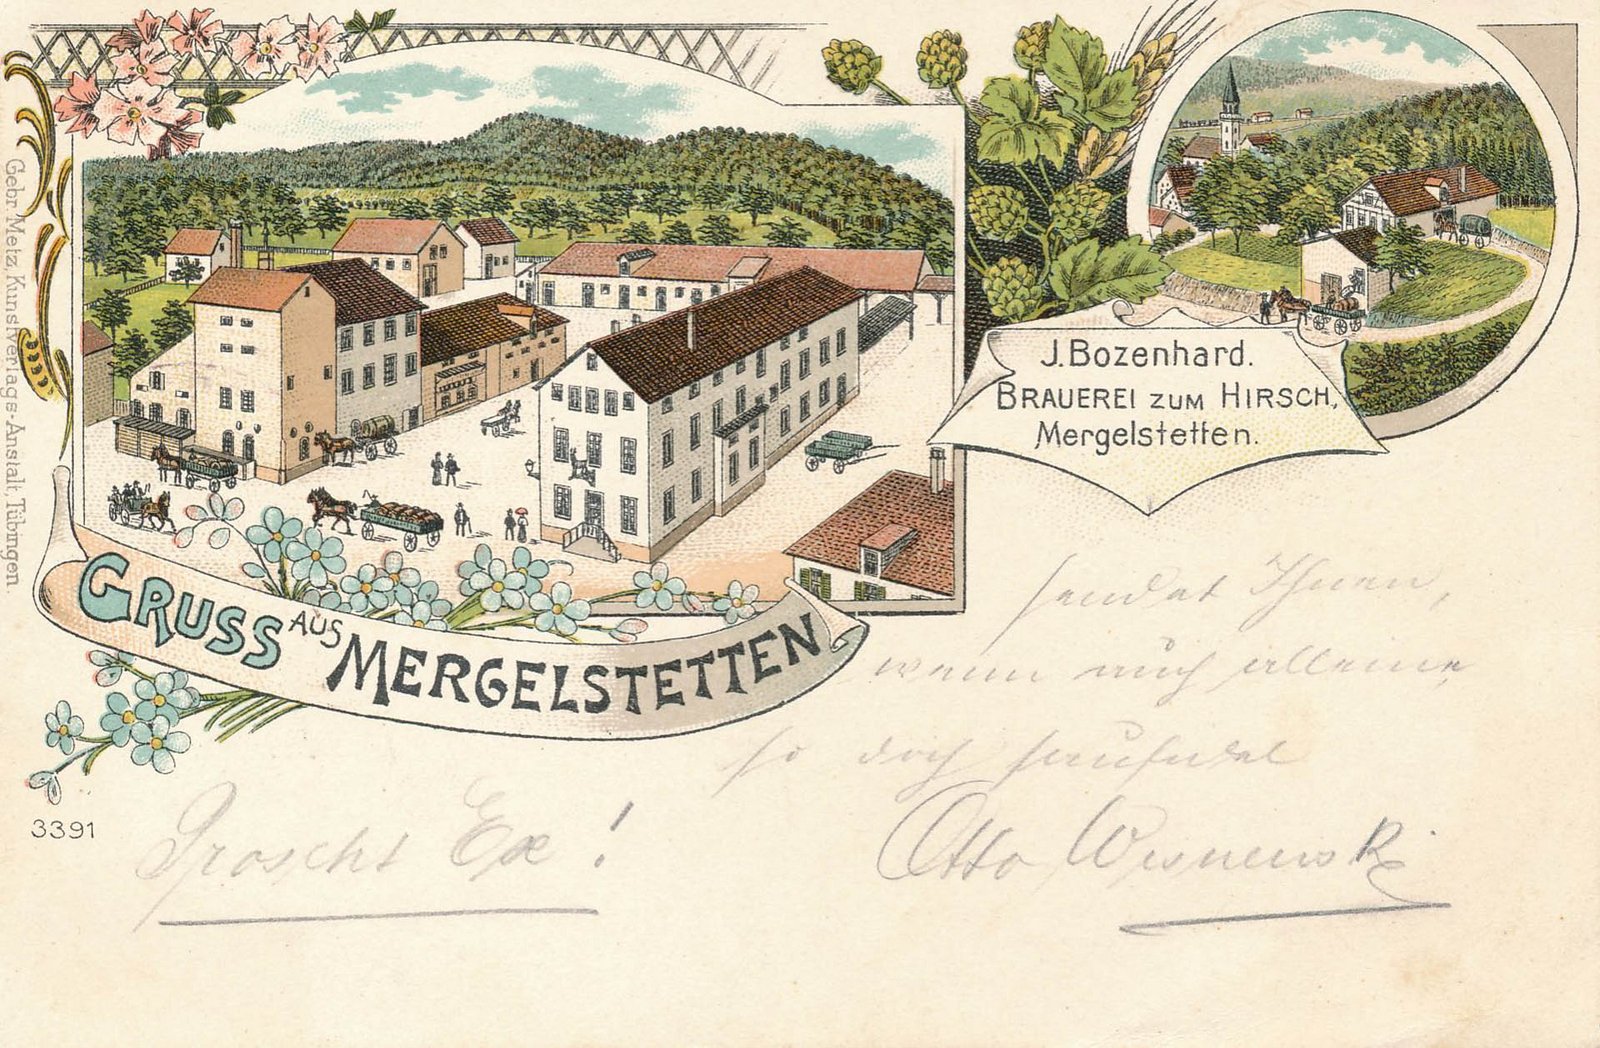 Gebr. Metz, Kunstverlags-Anstalt, Tübingen.
J. Bozenhard.
BRAUEREI ZUM HIRSCH,
Mergelstetten.
GRUSS AUS MERGELSTETTEN
3391
sendet Ihnen,
wenn auch alleine
so doch
Proscht Ex!
Otto Wisnewski